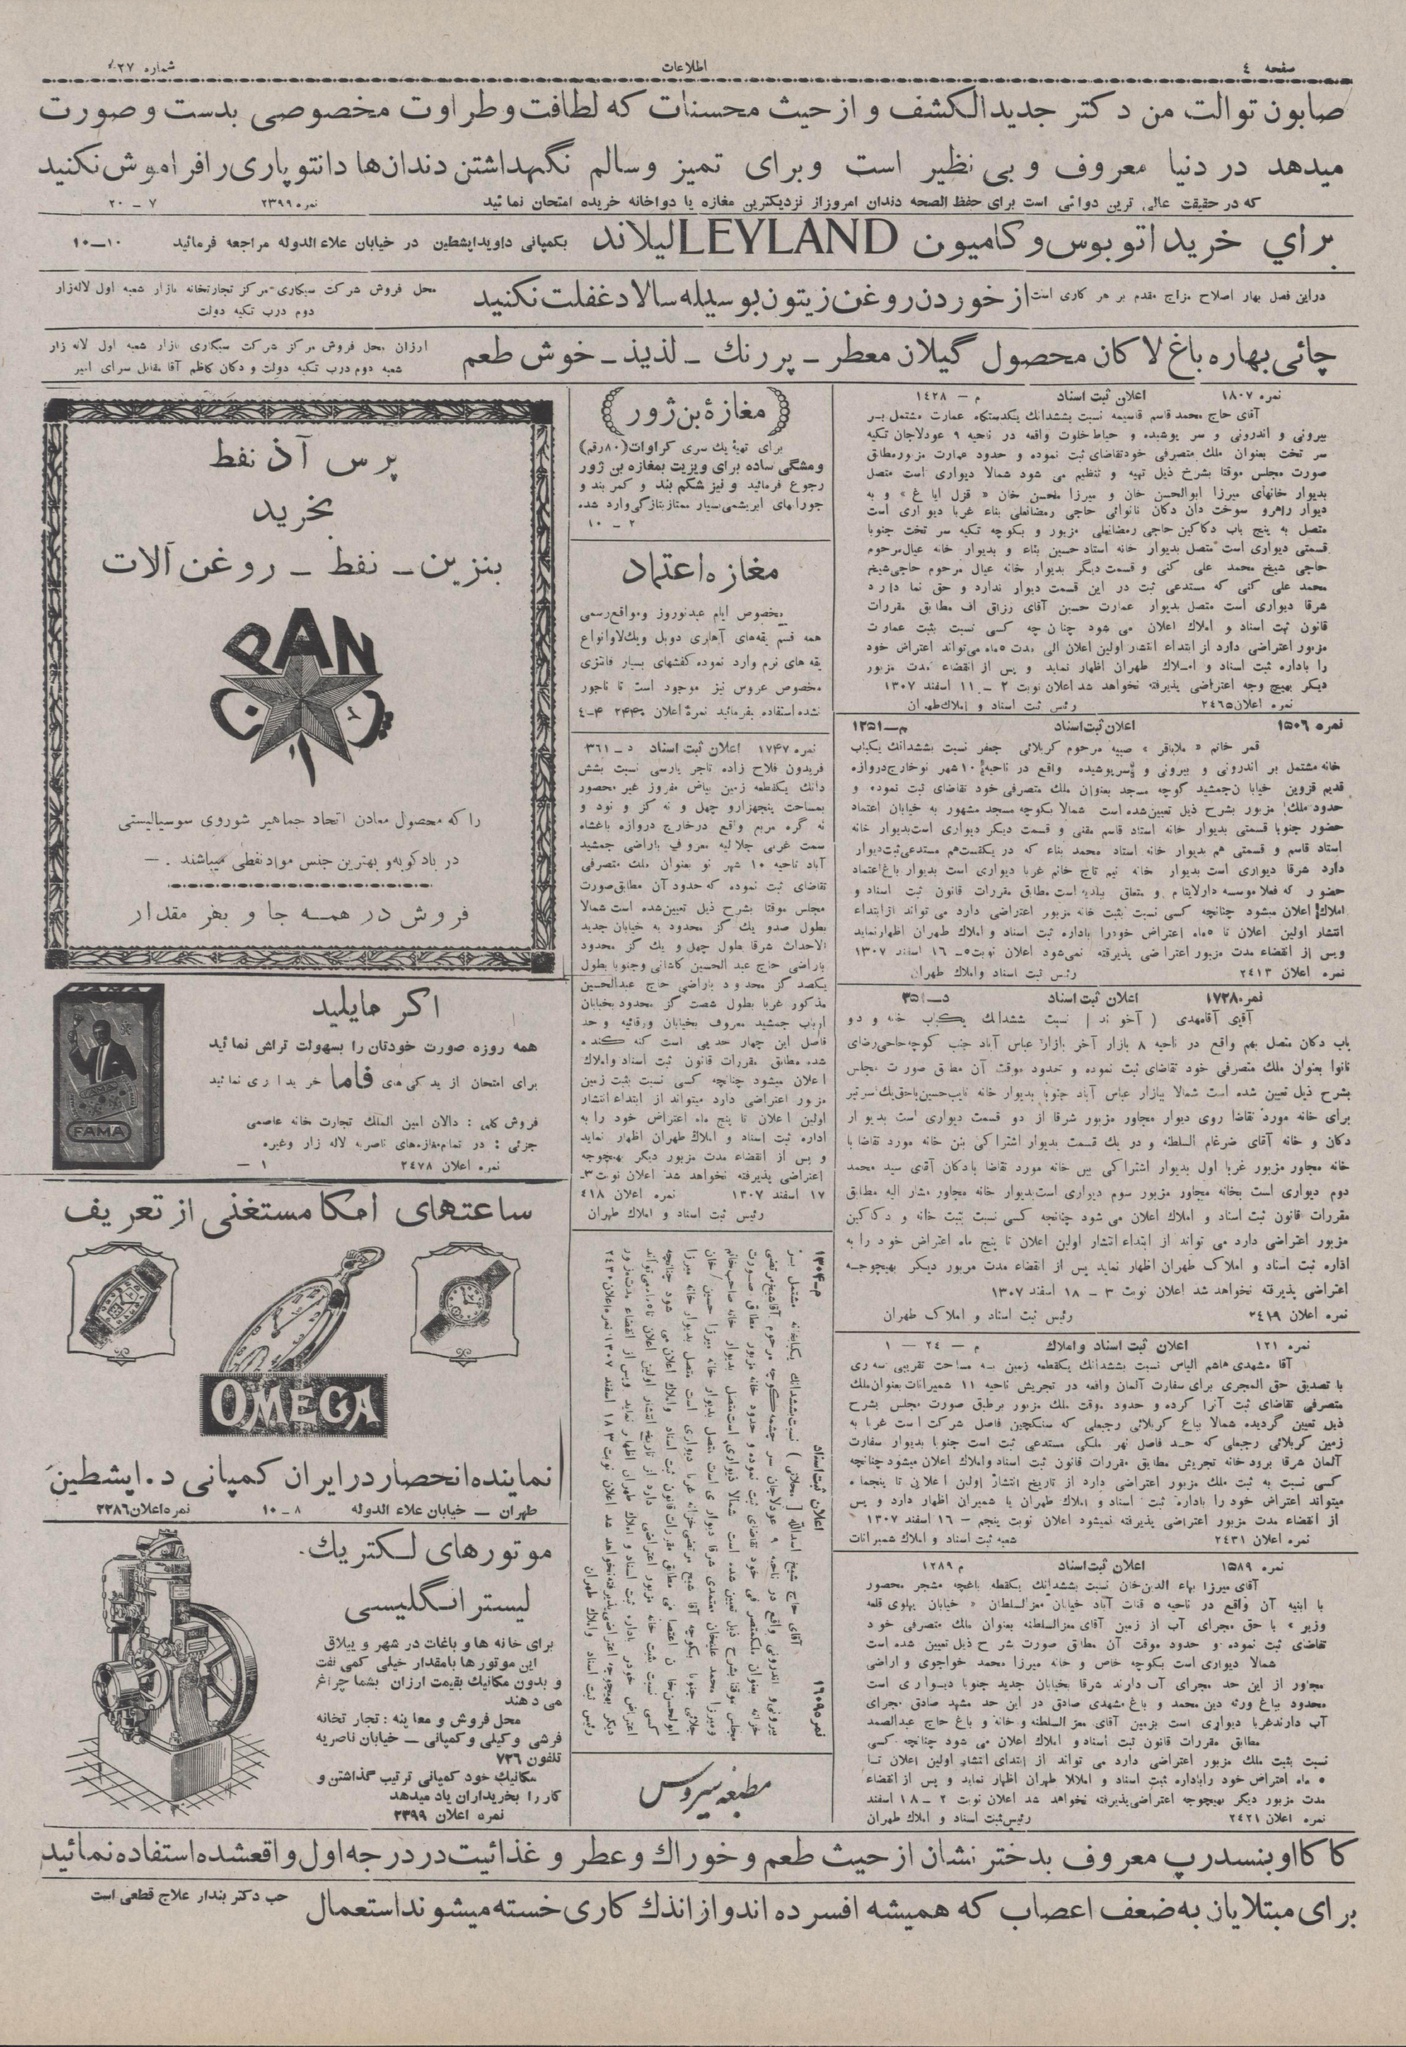 صفحه ٤
اطلاعات
شماره
صابون توالت من دکتر جدیدالکشف و از حیث محسنات که لطافت و طراوت مخصوصی بدست و صورت
میدهد در دنیا معروف و بی نظیر است وبرای تمیز وسالم نگهداشتن دندان‌ها دانتو پاری رافراموش نکنید
که در حقیقت عالی ترین دوائی است برای حفظ الصحه دندان امروز از نزدیکترین مغازه یا دواخانه خریده امتحان نمائید نمره ۲۳۹۹ ۷ – ۲۰
برای خرید اتوبوس و کامیون LEYLAND لیلاند بکمپانی داوید اپشطین در خیابان علاء الدوله مراجعه فرمائید ۱۰–۱۰
دراین فصل بهار اصلاح مزاج مقدم بر هر کاری است از خوردن روغن زیتون بوسیله سالاد غفلت نکنید
محل فروش شرکت سیگاری-مرکز تجارتخانه بازار شعبه اول لاله‌زار
دوم درب تکیه دولت
چائی بهاره باغ لاکان محصول گیلان معطر – پررنك – لذیذ – خوش طعم
ارزان محل فروش مرکز شرکت سیگاری بازار شعبه اول لاله زار
شعبه دوم درب تکیه دولت و دکان کاظم آقا مقابل سرای امیر
نمره ۱۸۰۷ اعلان ثبت اسناد م – ۱۴۲۸
آقای حاج محمد قاسم قاسیمه نسبت بششدانك یکدستگاه عمارت مشتمل بر
بیرونی و اندرونی و سر پوشیده و حیاط خلوت واقعه در ناحیه ۹ عودلاجان تکیه
سر تخت بعنوان ملك متصرفی خودتقاضای ثبت نموده و حدود عمارت مزبورمطابق
صورت مجلس موقتا بشرح ذیل تهیه و تنظیم می شود شمالا دیواری است متصل
بدیوار خانهای میرزا ابوالحسن خان و میرزا محسن خان « قزل ایاغ » و به
دیوار راهرو سوخت دان دکان نانوائی حاجی رمضانعلی بناء غربا دیواری است
متصل به پنج باب دکاکین حاجی رمضانعلی مزبور و بکوچه تکیه سر تخت جنوبا
قسمتی دیواری است متصل بدیوار خانه استاد حسین بناء و بدیوار خانه عیال مرحوم
حاجی شیخ محمد علی کنی و قسمت دیگر بدیوار خانه عیال مرحوم حاجی‌شیخ
محمد علی کنی که مستدعی ثبت در این قسمت دیوار ندارد و حق نما دارد
شرقا دیواری است متصل بدیوار عمارت حسین آقای رزاق اف مطابق مقررات
قانون ثبت اسناد و املاك اعلان می شود چنان چه کسی نسبت بثبت عمارت
مزبور اعتراضی دارد از ابتداء انتشار اولین اعلان الی مدت ۵ماه می‌تواند اعتراض خود
را باداره ثبت اسناد و املاك طهران اظهار نماید و پس از انقضاء مدت مزبور
دیگر بهیچ وجه اعتراضی پذیرفته نخواهد شد اعلان نوبت ۲ – ۱۱ اسفند ۱۳۰۷
نمره اعلان ۲۴۶۵ رئیس ثبت اسناد و املاك طهران
نمره ۱۵۰۶ اعلان ثبت اسناد م–۱۲۵۱
قمر خانم « ملاباقر » صبیه مرحوم کربلائی جعفر نسبت بششدانك یکباب
خانه مشتمل بر اندرونی و بیرونی و سرپوشیده واقع در ناحیه ۱۰ شهر نوخارج دروازه
قدیم قزوین خیابان جمشید کوچه مسجد بعنوان ملك متصرفی خود تقاضای ثبت نموده و
حدود ملك مزبور بشرح ذیل تعیین شده است شمالا بکوچه مسجد مشهور به خیابان اعتماد
حضور جنوبا قسمتی بدیوار خانه استاد قاسم مقنی و قسمت دیگر دیواری است بدیوار خانه
استاد قاسم و قسمتی هم بدیوار خانه استاد محمد بناء که در یکقسمت هم مستدعی ثبت دیوار
دارد شرقا دیواری است بدیوار خانه نیم تاج خانم غربا دیواری است بدیوار باغ اعتماد
حضور که فعلا موسسه دارلایتام و متعلق ببلدیه است مطابق مقررات قانون ثبت اسناد و
املاك اعلان میشود چنانچه کسی نسبت بثبت خانه مزبور اعتراضی دارد می تواند از ابتداء
انتشار اولین اعلان تا ۵ماه اعتراض خودرا باداره ثبت اسناد و املاك طهران اظهار نماید
وپس از انقضاء مدت مزبور اعتراضی پذیرفته نمی‌شود اعلان نوبت ۵– ۱۶ اسفند ۱۳۰۷
نمره اعلان ۲۴۱۳ رئیس ثبت اسناد واملاك طهران
نمره ۱۷۳۸ اعلان ثبت اسناد د–۳۵۱
آقای آقامهدی ( آخوند ) نسبت ششدانك یکباب خانه و دو
باب دکان متصل بهم واقع در ناحیه ۸ بازار آخر بازار عباس آباد جنب کوچه حاجی رضای
نانوا بعنوان ملك متصرفی خود تقاضای ثبت نموده و حدود موقت آن مطابق صورت مجلس
بشرح ذیل تعیین شده است شمالا ببازار عباس آباد جنوبا بدیوار خانه نایب حسین باحق یك سر تیر
برای خانه مورد تقاضا روی دیوار مجاور مزبور شرقا از دو قسمت دیواری است بدیوار
دکان و خانه آقای ضرغام السلطنه و در یك قسمت بدیوار اشتراکی بین خانه مورد تقاضا با
خانه مجاور مزبور غربا اول بدیوار اشتراکی بین خانه مورد تقاضا بادکان آقای سید محمد
دوم دیواری است بخانه مجاور مزبور سوم دیواری است بدیوار خانه مجاور مشار الیه مطابق
مقررات قانون ثبت اسناد و املاك اعلان می شود چنانچه کسی نسبت بثبت خانه و دکاکین
مزبور اعتراضی دارد می تواند از ابتداء انتشار اولین اعلان تا پنج ماه اعتراض خود را به
اداره ثبت اسناد و املاك طهران اظهار نماید پس از انقضاء مدت مزبور دیگر بهیچوجه
اعتراضی پذیرفته نخواهد شد اعلان نوبت ۳ – ۱۸ اسفند ۱۳۰۷
نمره اعلان ۲۴۱۹ رئیس ثبت اسناد و املاک طهران
نمره ۱۲۱ اعلان ثبت اسناد واملاك م – ۲۴ – ۱
آقا مشهدی هاشم الیاس نسبت بششدانك یکقطعه زمین به مساحت تقریبی
با تصدیق حق المجری برای سفارت آلمان واقعه در تجریش ناحیه ۱۱ شمیرانات بعنوان ملك
متصرفی تقاضای ثبت آنرا کرده و حدود موقت ملك مزبور برطبق صورت مجلس بشرح
ذیل تعیین گردیده شمالا بباغ کربلائی رجبعلی که سنگچین فاصل شرکت است غربا به
زمین کربلائی رجبعلی که حد فاصل نهر ملکی مستدعی ثبت است جنوبا بدیوار سفارت
آلمان شرقا برودخانه تجریش مطابق مقررات قانون ثبت اسناد واملاك اعلان میشود چنانچه
کسی نسبت به ثبت ملك مزبور اعتراضی دارد از تاریخ انتشار اولین اعلان تا پنجماه
میتواند اعتراض خود را باداره ثبت اسناد و املاك طهران یا شمیران اظهار دارد و پس
از انقضاء مدت مزبور اعتراضی پذیرفته نمیشود اعلان نوبت پنجم – ۱۶ اسفند ۱۳۰۷
نمره اعلان ۲۴۳۱ شعبه ثبت اسناد و املاك شمیرانات
نمره ۱۵۸۹ اعلان ثبت اسناد م ۱۲۸۹
آقای میرزا بهاء الدین خان نسبت بششدانك یکقطعه باغچه مشجر محصور
با ابنیه آن واقع در ناحیه ۵ قنات آباد خیابان معزالسلطان « خیابان پهلوی قلعه
وزیر » با حق مجرای آب از زمین آقای معزالسلطنه بعنوان ملك متصرفی خود
تقاضای ثبت نموده و حدود موقت آن مطابق صورت شرح ذیل تعیین شده است
شمالا دیواری است بکوچه خاص و خانه میرزا محمد خواجوی و اراضی
مجاور از این حد مجرای آب دارند شرقا بخیابان جدید جنوبا دیواری است
محدود بباغ ورثه دین محمد و باغ مشهدی صادق در این حد مشهد صادق مجرای
آب دارند غربا دیواری است بزمین آقای معز السلطنه و خانه و باغ حاج عبدالصمد
مطابق مقررات قانون ثبت اسناد و املاك اعلان می شود چنانچه کسی
نسبت بثبت ملك مزبور اعتراضی دارد می تواند از ابتدای انتشار اولین اعلان تا
۵ ماه اعتراض خود راباداره ثبت اسناد و املاك طهران اظهار نماید و پس از انقضاء
مدت مزبور دیگر بهیچوجه اعتراضی پذیرفته نخواهد شد اعلان نوبت ۲ – ۱۸ اسفند
نمره اعلان ۲۴۲۱ رئیس ثبت اسناد و املاك طهران
مغازهٔ بن ژور
برای تهیهٔ یك سری کراوات (۸۰رقم)
ومشگی ساده برای ویزیت بمغازه بن ژور
رجوع فرمائید و نیز شکم بند و کمر بند و
جورابهای ابریشمی بسیار ممتاز بتازگی وارد شده
۲ – ۱۰
مغازه اعتماد
مخصوص ایام عیدنوروز ومواقع رسمی
همه قسم یقه‌های آهاری دوبل ویك‌لا وانواع
یقه های نرم وارد نموده کفشهای بسیار فانتزی
مخصوص عروس نیز موجود است تا ناجور
نشده استفاده بفرمائید نمرهٔ اعلان ۲۴۴۰ ۴–۴
نمره ۱۷۴۷ اعلان ثبت اسناد د – ۳۶۱
فریدون فلاح زاده تاجر پارسی نسبت بشش
دانك یکقطعه زمین بیاض مفروز غیر محصور
بمساحت پنجهزارو چهل و نه گز و نود و
نه گره مربع واقع درخارج دروازه باغشاه
سمت غربی جلالیه معروف باراضی جمشید
آباد ناحیه ۱۰ شهر نو بعنوان ملك متصرفی
تقاضای ثبت نموده که حدود آن مطابق صورت
مجلس موقتا بشرح ذیل تعیین شده است شمالا
بطول صدو یك گز محدود به خیابان جدید
الاحداث شرقا بطول چهل و یك گز محدود
باراضی حاج عبد الحسین کاشانی وجنوبا بطول
یکصد گز محدود باراضی حاج عبدالحسین
مذکور غربا بطول شصت گز محدود بخیابان
ارباب جمشید معروف بخیابان ورقائیه و حد
فاصل این چهار حد پی است که کنده
شده مطابق مقررات قانون ثبت اسناد واملاك
اعلان میشود چنانچه کسی نسبت بثبت زمین
مزبور اعتراضی دارد میتواند از ابتداء انتشار
اولین اعلان تا پنج ماه اعتراض خود را به
اداره ثبت اسناد و املاك طهران اظهار نماید
و پس از انقضاء مدت مزبور دیگر بهیچوجه
اعتراضی پذیرفته نخواهد شد اعلان نوبت ۳–
۱۷ اسفند ۱۳۰۷ نمره اعلان ۴۱۸
رئیس ثبت اسناد و املاك طهران
نمره ۱۶۰۹۵ اعلان ثبت اسناد م–۱۳۰۴
رئیس ثبت اسناد واملاك طهران
مطبعه سیروس
پرس آذ نفط
بخرید
بنزین – نفط – روغن آلات
PAN
را که محصول معادن اتحاد جماهیر شوروی سوسیالیستی
در بادکوبه و بهترین جنس مواد نفطی میباشند . –
فروش در همه جا و بهر مقدار
اگر مایلید
همه روزه صورت خودتان را بسهولت تراش نمائید
برای امتحان از یدکی‌های فاما خریداری نمائید
فروش کلی : دالان امین الملك تجارت خانه عاصمی
جزئی : در تمام مغازه‌های ناصریه لاله زار وغیره
نمره اعلان ۲۴۷۸ ۱ –
FAMA
FAMA
ساعتهای امگا مستغنی از تعریف
OMEGA
نماینده انحصار در ایران کمپانی د . اپشطین
طهران – خیابان علاء الدوله ۸ – ۱۰ نمره اعلان ۲۳۸۶
موتورهای لکتریك .
لیستر انگلیسی
برای خانه ها و باغات در شهر و ییلاق
این موتورها بامقدار خیلی کمی نفت
و بدون مکانیك بقیمت ارزان بشما چراغ
می دهند
محل فروش و معاینه : تجارتخانه
فرشی و کیلی و کمپانی – خیابان ناصریه
تلفون ۷۳۶
مکانیك خود کمپانی ترتیب گذاشتن و
کار را بخریداران یاد میدهد
نمره اعلان ۲۳۹۹
کاکااو بنسدرپ معروف بدختر نشان از حیث طعم و خوراك و عطر و غذائیت در درجه اول واقعشده استفاده نمائید
برای مبتلایان به ضعف اعصاب که همیشه افسرده اند و از اندك کاری خسته میشوند استعمال حب دکتر بندار علاج قطعی است